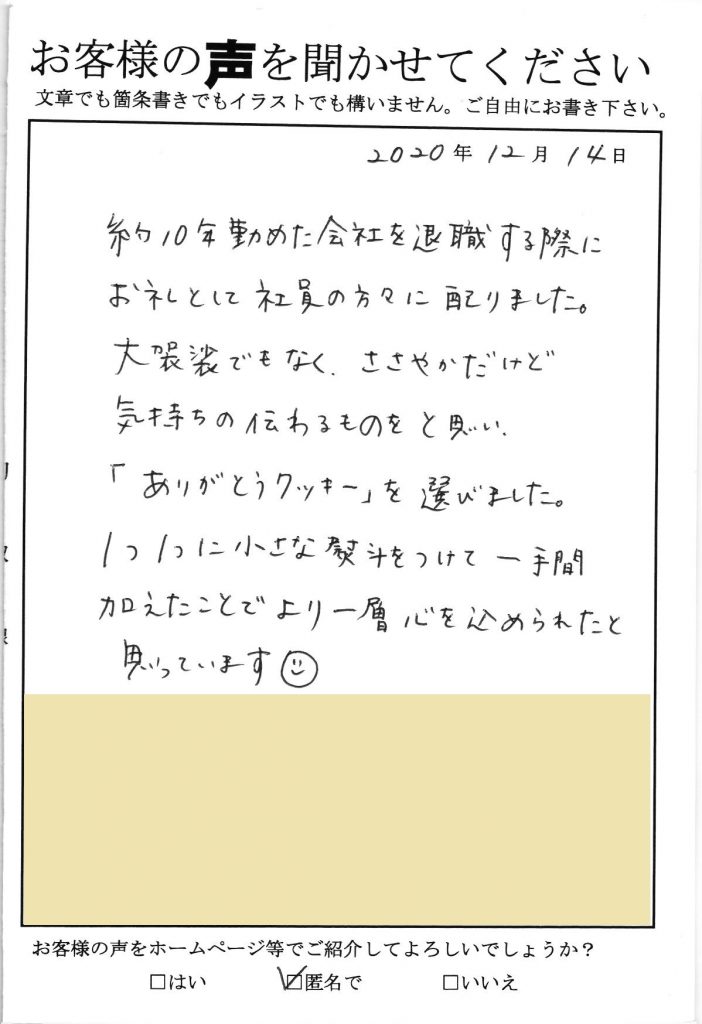 お客様の声を聞かせてください
文章でも箇条書きでもイラストでも構いません。ご自由にお書き下さい。
2020年 12月 14日
約10年勤めた会社を退職する際に
お礼として社員の方々に配りました。
大袈裟でもなく、ささやかだけど
気持ちの伝わるものをと思い、
「ありがとうクッキー」を選びました。
1つ1つに小さな熨斗をつけて一手間
加えたことでより一層心を込められたと
思っています
お客様の声をホームページ等でご紹介してよろしいでしょうか?
□はい ☑匿名で □いいえ